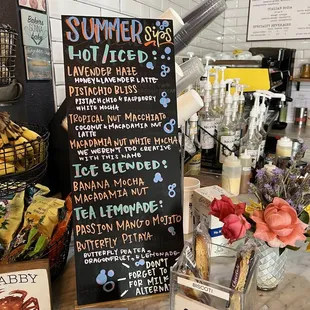 SUMMER Sips
HOT/ICED:
LAVENDER HAZE
HONEY & LAVENDER LATTE
PISTACHIO BLISS
PISTACHIO & RASPBERRY
WHITE MOCHA
TROPICAL NUT MACCHIATO
COCONUT & MACADAMIA NUT
MACADAMIA WHITE MOCHA
WE WEREN'T TOO CREATIVE
WITH THIS NAME
ICE BLENDED:
BANANA MOCHA
MACADAMIA NUT
TEA LEMONADE:
PASSION MANGO MOJITO
BUTTERFLY PITAYA
BUTTERFLY PEA TEA
DRAGONFRUIT
DON'T
FORGET TO ASK
FOR MILK
ALTERNATIVES
BISCOTTI
ABBY